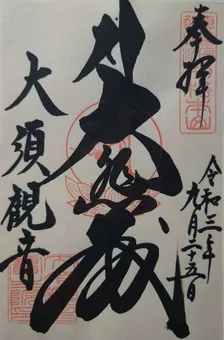 奉拝
令和二年
九月二十五日
大悲殿
大須觀音